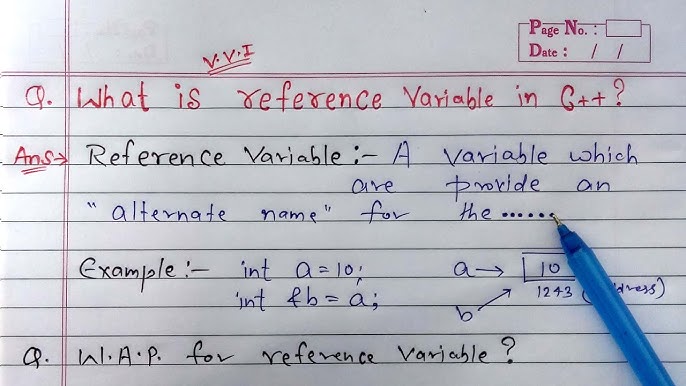 Page No. :
Date : / /
V.V.I
Q. What is reference Variable in C++?
Ans→ Reference Variable :- A variable which
are provide an
"alternate name" for the ......
Example :- int a = 10; a → 10
int &b = a; 1243
b
Q. W.A.P. for reference variable?